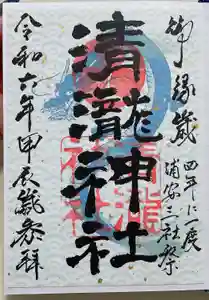 縁歳
四年に一度
浦安三社祭
清瀧神社
令和六年甲辰歳参拝